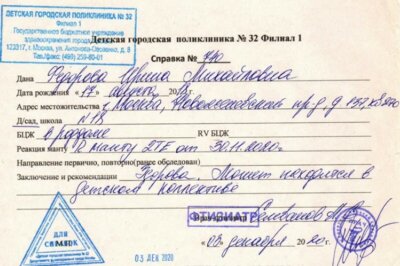 ДЕТСКАЯ ГОРОДСКАЯ ПОЛИКЛИНИКА № 32
Филиал 1
Государственное бюджетное учреждение
здравоохранения города
123317, г. Москва, ул. Антонова-Овсеенко, д. 8
Тел./факс: (499) 259-60-01
Детская городская поликлиника № 32 Филиал 1
Справка №
Дана Федорова Ирина Михайловна
Дата рождения «17» август
Адрес местожительства г. Москва,
Д/сад, школа N 18
БЦЖ в роддоме RV БЦЖ
Реакция манту R манту 2ТЕ от 30.11.2020г.
Направление первично, повторно(ранее обследован)
Заключение и рекомендации Здорова. Может находится в
детском коллективе
ФТИЗИАТР Селиванов А.
« 03 декабря 20 20г.
ДЛЯ
СПРАВОК
03 ДЕК 2020